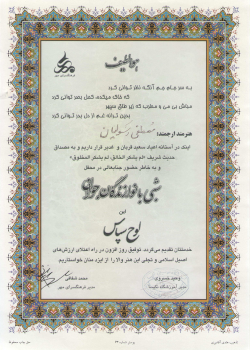 هواللطیف
به سر جام جم آنگه نظر توانی کرد
که خاک میکده کحل بصر توانی کرد
مباش بی می و مطرب که زیر طاق سپهر
بدین ترانه غم از دل بدر توانی کرد
هنرمند ارجمند:
اینک در آستانه اعیاد سعید قربان و غدیر قرار داریم و به مصداق
حدیث شریف «لم یشکر الخالق لم یشکر المخلوق»
و به خاطر حضور جنابعالی در محفل
شبی با نوازندگان جوان
این
لوح سپاس
خدمتتان تقدیم می‌گردد. توفیق روز افزون در راه اعتلای ارزش‌های
اصیل اسلامی و تجلی این هنر والا را از ایزد منان خواستاریم
وحید خسروی
محمد شفاقی
مدیر فرهنگسرای مهر